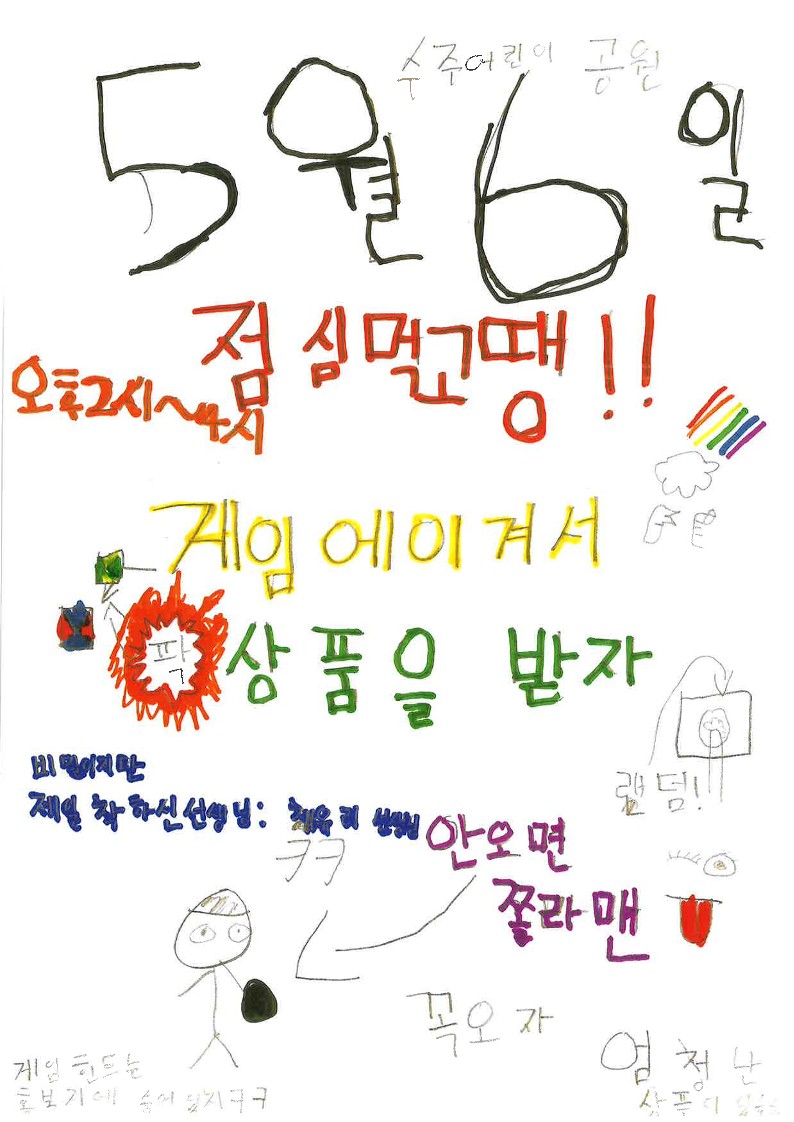 수주어린이 공원
5월 6일
점심먹고땡!!
오후2시~4시
게임에이겨서
팍
상품을 받자
랜덤!
비밀이지만
제일 착하신선생님: 최유리 선생님
ㅋㅋ
안오면
쫄라맨
꼭오자
게임 힌트는
홍보지에 숨어있지ㅋㅋㅋ
엄청난
상품이